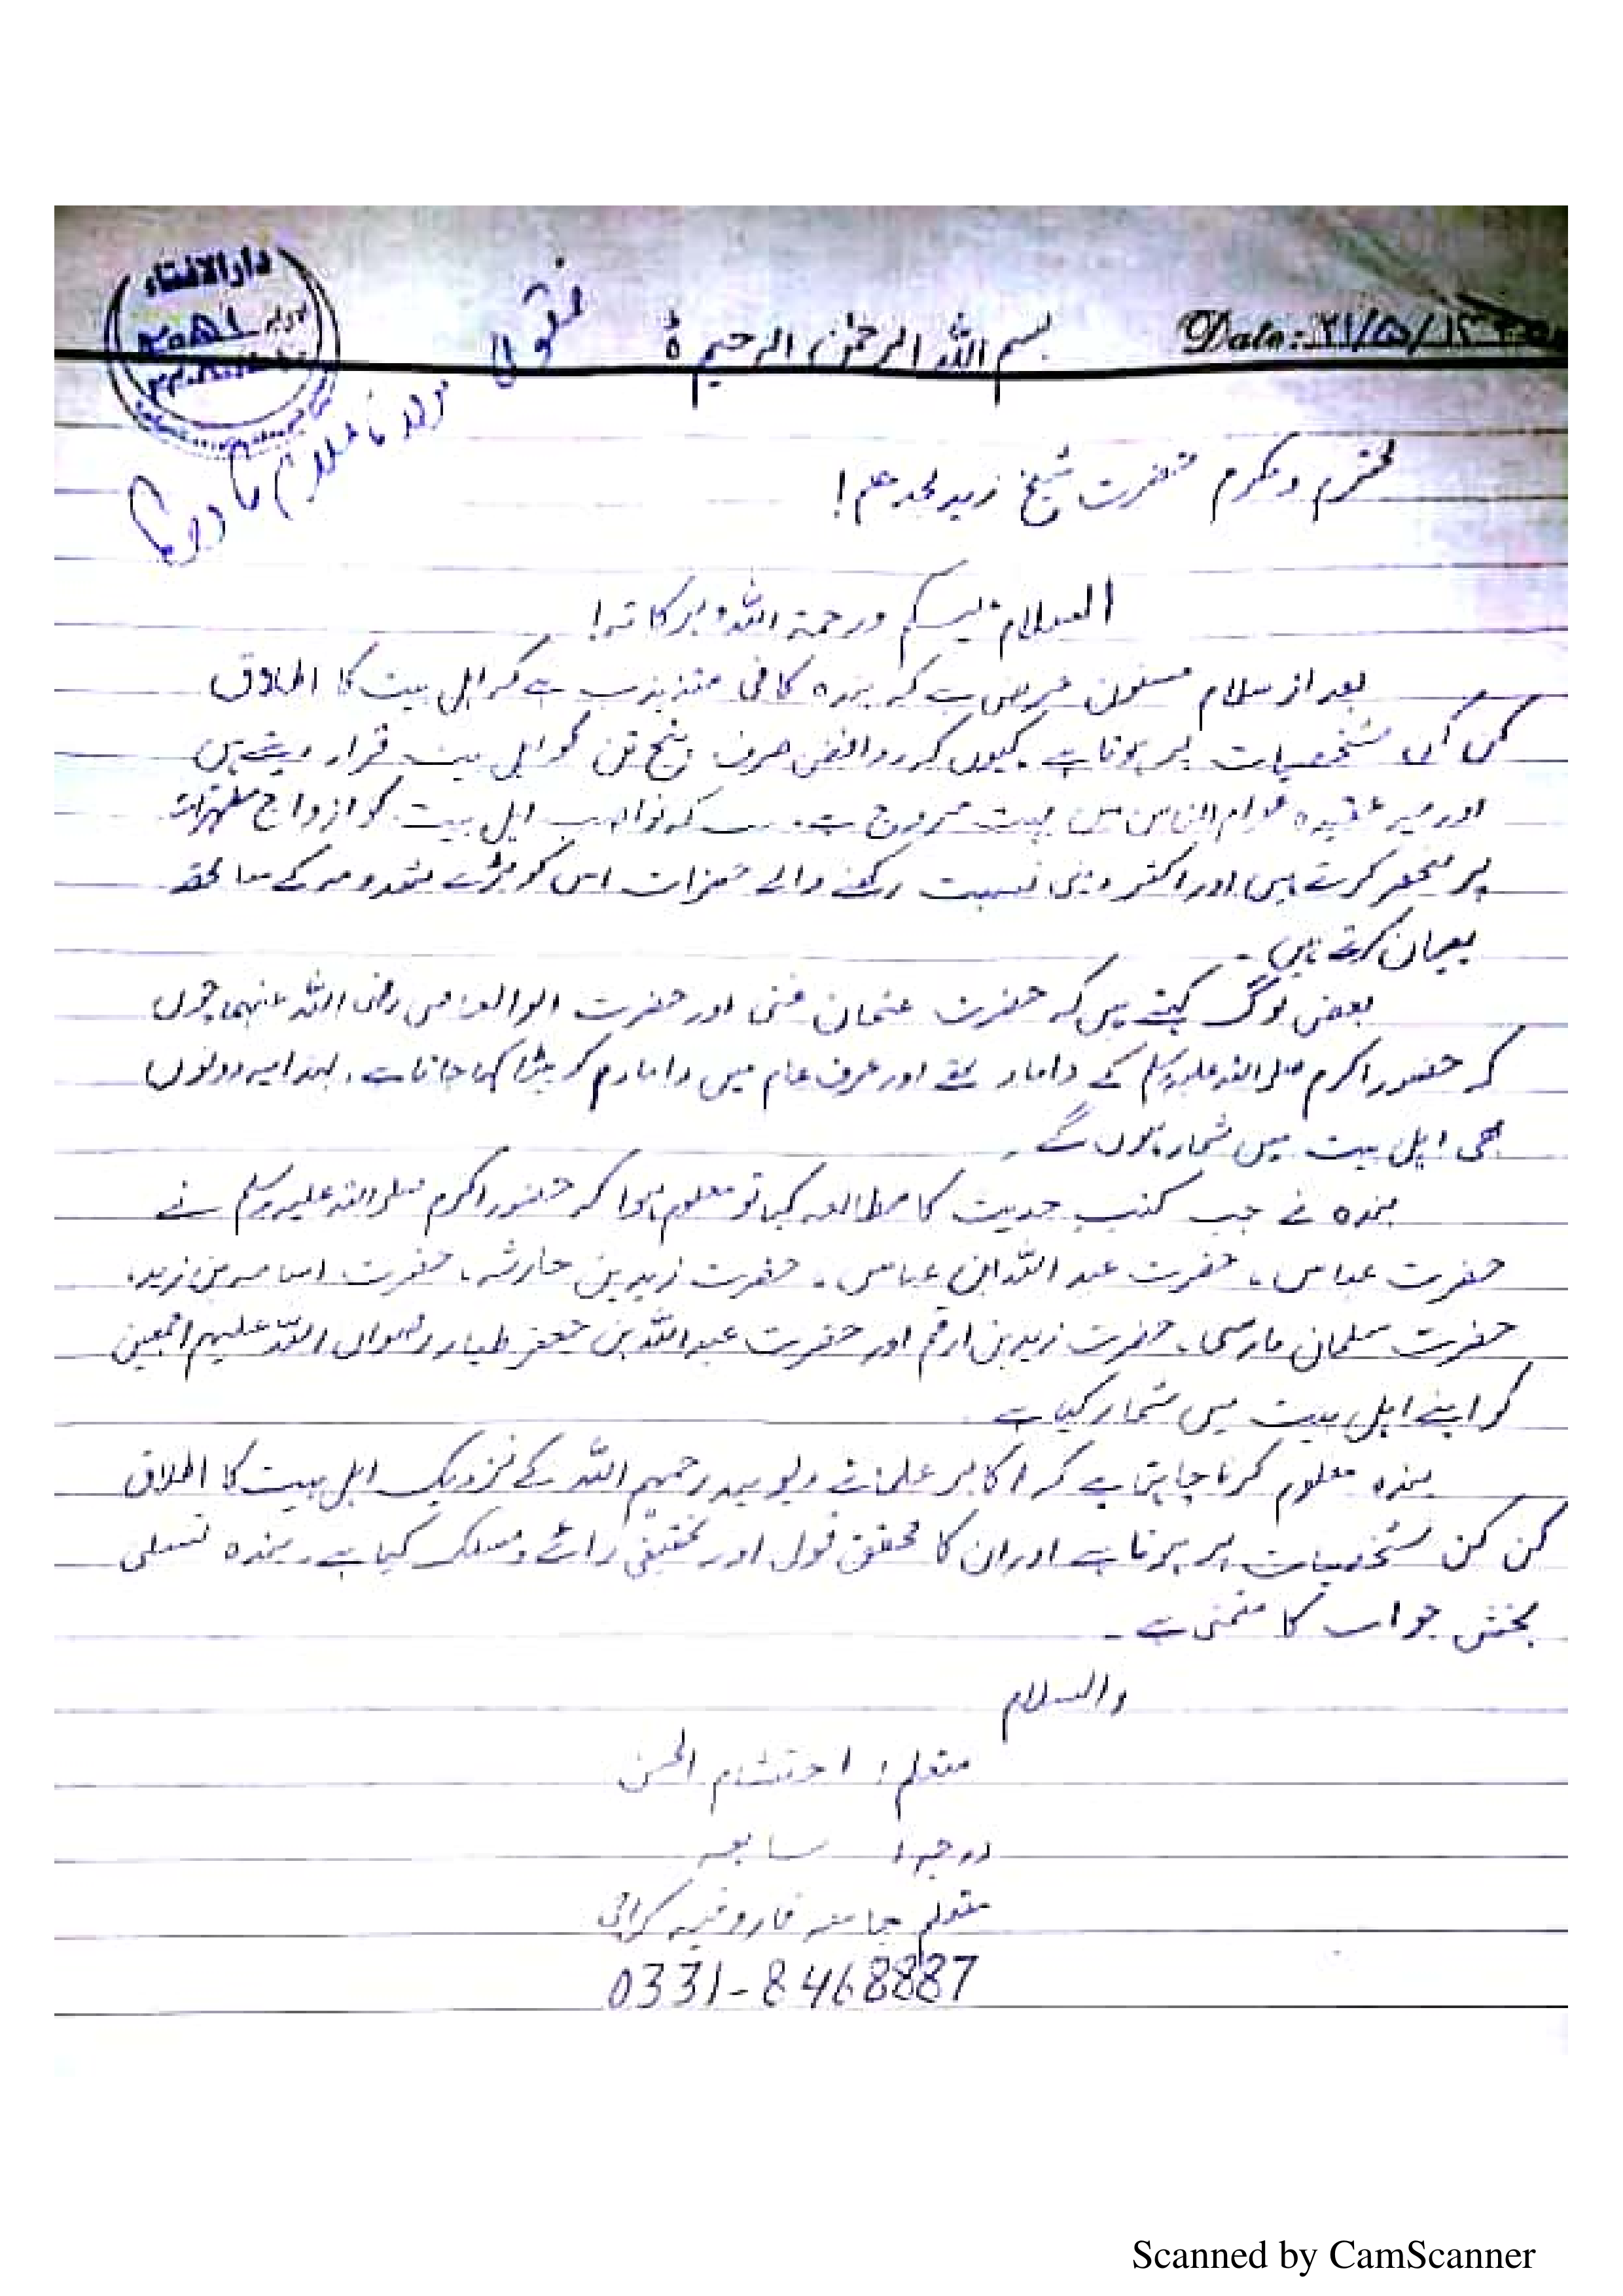 دارالافتاء
نقول
بسم اللہ الرحمٰن الرحیم ۃ
Date: ۲۱/۵/۱۴
مولانا غلام
محترم ومکرم حضرت شیخ زید مجدھم!
السلام علیکم ورحمۃ اللہ وبرکاتہ!
بعد از سلام مسنون عرض ہے کہ بندہ کافی متذبذب ہے کہ اہل بیت کا اطلاق
کن کن شخصیات پر ہوتا ہے۔ کیوں کہ روافض صرف پنج تن کو اہل بیت قرار دیتے ہیں
اور یہ عقیدہ عوام الناس میں بہت مروج ہے۔ کہ نواصب اہل بیت کو ازواج مطہرات
پر منحصر کرتے ہیں اور اکثر دینی نسبت رکھنے والے حضرات اس کو بڑے شدومد کے ساتھ
بیان کرتے ہیں۔
بعض لوگ کہتے ہیں کہ حضرت عثمان غنی اور حضرت ابوالعاص رضی اللہ عنہما چوں
کہ حضور اکرم صلی اللہ علیہ وسلم کے داماد تھے اور عرف عام میں داماد کو بیٹا کہا جاتا ہے، لہٰذا یہ دونوں
بھی اہل بیت میں شمار ہوں گے۔
بندہ نے جب کتب حدیث کا مطالعہ کیا تو معلوم ہوا کہ حضور اکرم صلی اللہ علیہ وسلم نے
حضرت عباس، حضرت عبد اللہ ابن عباس، حضرت زید بن حارثہ، حضرت اسامہ بن زید،
حضرت سلمان فارسی، حضرت زید بن ارقم اور حضرت عبد اللہ بن جعفر طیار رضوان اللہ علیہم اجمعین
کو اپنے اہل بیت میں شمار کیا ہے
بندہ معلوم کرنا چاہتا ہے کہ اکابر علمائے دیوبند رحمہم اللہ کے نزدیک اہل بیت کا اطلاق
کن کن شخصیات پر ہوتا ہے اور ان کا محقق قول اور تحقیقی رائے ومسلک کیا ہے۔ بندہ تسلی
بخش جواب کا متمنی ہے۔
والسلام
متعلم: احتشام الحسن
درجہ: سابعہ
متعلم جامعہ فاروقیہ کراچی
0331-8468887
Scanned by CamScanner